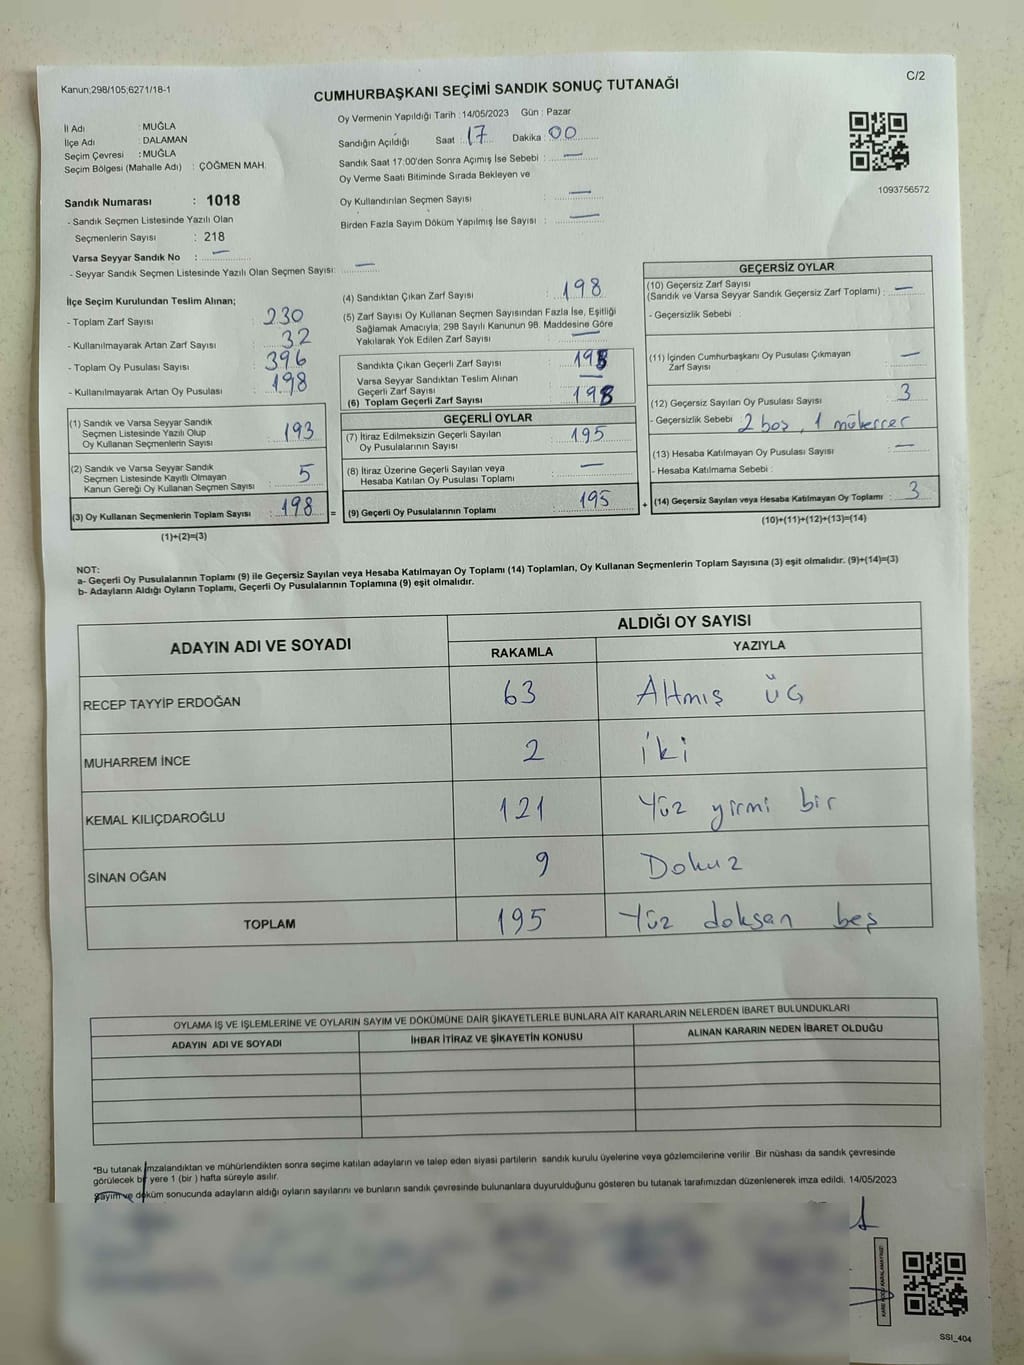 Kanun;298/105;6271/18-1
C/2
CUMHURBAŞKANI SEÇİMİ SANDIK SONUÇ TUTANAĞI
İl Adı : MUĞLA
İlçe Adı : DALAMAN
Seçim Çevresi : MUĞLA
Seçim Bölgesi (Mahalle Adı) : ÇÖĞMEN MAH.
Oy Vermenin Yapıldığı Tarih : 14/05/2023 Gün : Pazar
Sandığın Açıldığı Saat : 17 Dakika : 00
Sandık Saat 17:00'den Sonra Açımış İse Sebebi : —
Oy Verme Saati Bitiminde Sırada Bekleyen ve
Oy Kullandırılan Seçmen Sayısı : —
Birden Fazla Sayım Döküm Yapılmış İse Sayısı : —
1093756572
Sandık Numarası : 1018
- Sandık Seçmen Listesinde Yazılı Olan
Seçmenlerin Sayısı : 218
Varsa Seyyar Sandık No : —
- Seyyar Sandık Seçmen Listesinde Yazılı Olan Seçmen Sayısı: —
İlçe Seçim Kurulundan Teslim Alınan;
- Toplam Zarf Sayısı : 230
- Kullanılmayarak Artan Zarf Sayısı : 32
- Toplam Oy Pusulası Sayısı : 396
- Kullanılmayarak Artan Oy Pusulası : 198
(1) Sandık ve Varsa Seyyar Sandık
Seçmen Listesinde Yazılı Olup
Oy Kullanan Seçmenlerin Sayısı : 193
(2) Sandık ve Varsa Seyyar Sandık
Seçmen Listesinde Kayıtlı Olmayan
Kanun Gereği Oy Kullanan Seçmen Sayısı : 5
(3) Oy Kullanan Seçmenlerin Toplam Sayısı : 198 =
(1)+(2)=(3)
(4) Sandıktan Çıkan Zarf Sayısı : 198
(5) Zarf Sayısı Oy Kullanan Seçmen Sayısından Fazla İse, Eşitliği
Sağlamak Amacıyla; 298 Sayılı Kanunun 98. Maddesine Göre
Yakılarak Yok Edilen Zarf Sayısı : —
Sandıkta Çıkan Geçerli Zarf Sayısı : 198
Varsa Seyyar Sandıktan Teslim Alınan
Geçerli Zarf Sayısı : —
(6) Toplam Geçerli Zarf Sayısı : 198
GEÇERLİ OYLAR
(7) İtiraz Edilmeksizin Geçerli Sayılan
Oy Pusulalarının Sayısı : 195
(8) İtiraz Üzerine Geçerli Sayılan veya
Hesaba Katılan Oy Pusulası Toplamı : —
(9) Geçerli Oy Pusulalarının Toplamı : 195 +
GEÇERSİZ OYLAR
(10) Geçersiz Zarf Sayısı
(Sandık ve Varsa Seyyar Sandık Geçersiz Zarf Toplamı) : —
- Geçersizlik Sebebi :
(11) İçinden Cumhurbaşkanı Oy Pusulası Çıkmayan
Zarf Sayısı : —
(12) Geçersiz Sayılan Oy Pusulası Sayısı : 3
- Geçersizlik Sebebi : 2 boş, 1 mükerrer
(13) Hesaba Katılmayan Oy Pusulası Sayısı : —
- Hesaba Katılmama Sebebi :
(14) Geçersiz Sayılan veya Hesaba Katılmayan Oy Toplamı : 3
(10)+(11)+(12)+(13)=(14)
NOT:
a- Geçerli Oy Pusulalarının Toplamı (9) ile Geçersiz Sayılan veya Hesaba Katılmayan Oy Toplamı (14) Toplamları, Oy Kullanan Seçmenlerin Toplam Sayısına (3) eşit olmalıdır. (9)+(14)=(3)
b- Adayların Aldığı Oyların Toplamı, Geçerli Oy Pusulalarının Toplamına (9) eşit olmalıdır.
ADAYIN ADI VE SOYADI
ALDIĞI OY SAYISI
RAKAMLA YAZIYLA
RECEP TAYYİP ERDOĞAN 63 Altmış üç
MUHARREM İNCE 2 iki
KEMAL KILIÇDAROĞLU 121 Yüz yirmi bir
SİNAN OĞAN 9 Dokuz
TOPLAM 195 Yüz doksan beş
OYLAMA İŞ VE İŞLEMLERİNE VE OYLARIN SAYIM VE DÖKÜMÜNE DAİR ŞİKAYETLERLE BUNLARA AİT KARARLARIN NELERDEN İBARET BULUNDUKLARI
ADAYIN ADI VE SOYADI İHBAR İTİRAZ VE ŞİKAYETİN KONUSU ALINAN KARARIN NEDEN İBARET OLDUĞU
*Bu tutanak imzalandıktan ve mühürlendikten sonra seçime katılan adayların ve talep eden siyasi partilerin sandık kurulu üyelerine veya gözlemcilerine verilir. Bir nüshası da sandık çevresinde
görülecek bir yere 1 (bir) hafta süreyle asılır.
Sayım ve döküm sonucunda adayların aldığı oyların sayılarını ve bunların sandık çevresinde bulunanlara duyurulduğunu gösteren bu tutanak tarafımızdan düzenlenerek imza edildi. 14/05/2023
SSI_404